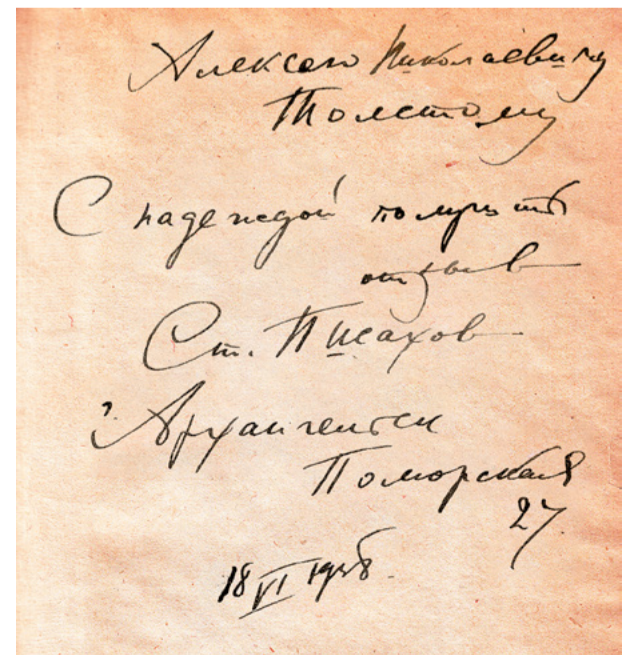 Алексею Николаевичу
Толстому
С надеждой получить
отзыв
Ст. Писахов
г. Архангельск
Поморская
27.
18 VI